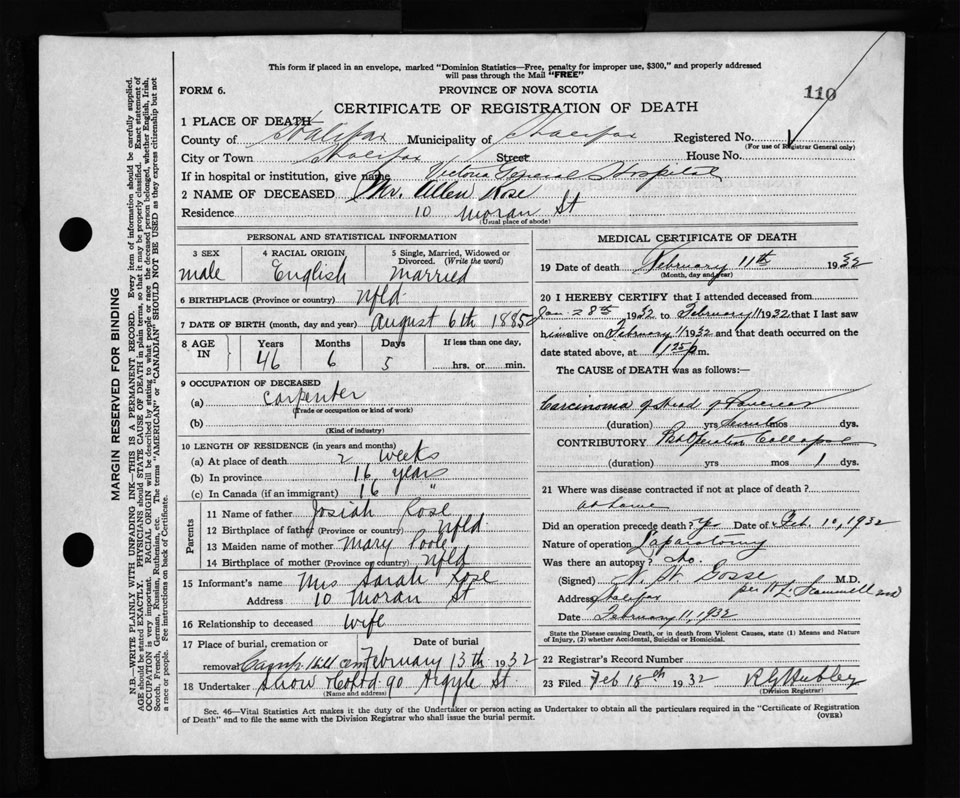 This form if placed in an envelope, marked "Dominion Statistics—Free, penalty for improper use, $300," and properly addressed
will pass through the Mail "FREE"
FORM 6.
PROVINCE OF NOVA SCOTIA
110
CERTIFICATE OF REGISTRATION OF DEATH
1 PLACE OF DEATH
County of Halifax Municipality of Halifax Registered No.
(For use of Registrar General only)
City or Town Halifax Street House No.
If in hospital or institution, give name Victoria General Hospital
2 NAME OF DECEASED Mr. Allen Rose
Residence 10 Moran St
(Usual place of abode)
PERSONAL AND STATISTICAL INFORMATION
3 SEX 4 RACIAL ORIGIN 5 Single, Married, Widowed or
Divorced. (Write the word)
male English Married
6 BIRTHPLACE (Province or country) Nfld
7 DATE OF BIRTH (month, day and year) August 6th 1885
8 AGE IN Years Months Days If less than one day,
46 6 5 hrs. or min.
9 OCCUPATION OF DECEASED
(a) Carpenter
(Trade or occupation or kind of work)
(b)
(Kind of industry)
10 LENGTH OF RESIDENCE (in years and months)
(a) At place of death 2 weeks
(b) In province 16 years
(c) In Canada (if an immigrant) 16 "
Parents
11 Name of father Josiah Rose
12 Birthplace of father (Province or country) Nfld.
13 Maiden name of mother Mary Poole
14 Birthplace of mother (Province or country) Nfld
15 Informant's name Mrs Sarah Rose
Address 10 Moran St
16 Relationship to deceased wife
17 Place of burial, cremation or Date of burial
removal Camp Hill Cem February 13th 1932
18 Undertaker Snow & Co Ltd. 90 Argyle St.
(Name and address)
MEDICAL CERTIFICATE OF DEATH
19 Date of death February 11th 1932
(Month, day and year)
20 I HEREBY CERTIFY that I attended deceased from
Jan 28th 1932 to February 11 1932 that I last saw
him alive on February 11 1932 and that death occurred on the
date stated above, at 1 25 p m.
The CAUSE of DEATH was as follows:—
Carcinoma of Head of Pancreas
(duration) yrs mos dys.
CONTRIBUTORY Post Operative Collapse
(duration) yrs mos 1 dys.
21 Where was disease contracted if not at place of death?
at home
Did an operation precede death? Yes Date of Feb. 10, 1932
Nature of operation Laparotomy
Was there an autopsy? No.
(Signed) N. H. Gosse M.D.
Address Halifax per H. L. Scammell
Date February 11, 1932
State the Disease causing Death, or in death from Violent Causes, state (1) Means and Nature
of Injury, (2) whether Accidental, Suicidal or Homicidal.
22 Registrar's Record Number
23 Filed Feb 18th 1932
(Division Registrar)
Sec. 46—Vital Statistics Act makes it the duty of the Undertaker or person acting as Undertaker to obtain all the particulars required in the "Certificate of Registration
of Death" and to file the same with the Division Registrar who shall issue the burial permit. (OVER)
MARGIN RESERVED FOR BINDING
N.B.—WRITE PLAINLY WITH UNFADING INK—THIS IS A PERMANENT RECORD. Every item of information should be carefully supplied.
AGE should be stated EXACTLY. PHYSICIANS should STATE CAUSE OF DEATH in plain terms, so that it may be properly classified. Exact statement of
OCCUPATION is very important. RACIAL ORIGIN will be described by stating to what people or race the deceased person belonged, whether English, Irish,
Scotch, French, German, Russian, Ruthenian, etc. The terms "AMERICAN" or "CANADIAN" SHOULD NOT BE USED as they express citizenship but not
a race or people. See instructions on back of Certificate.